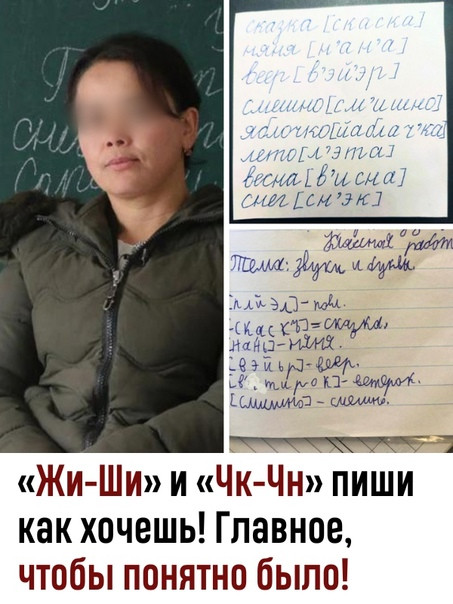 сказка [скаска]
няня [н'ан'а]
веер [в'эй'эр]
смешно [см'ишно]
яблочко [йаблач'ка]
лето [л'эта]
весна [в'исна]
снег [сн'эк]
работ
Тема: звуки и буквы.
[скаскъ] = сказка,
[нань] - няня.
[вэйьр] - веер.
ветерок.
[смишно] - смешно.
«Жи-Ши» и «Чк-Чн» пиши
как хочешь! Главное,
чтобы понятно было!